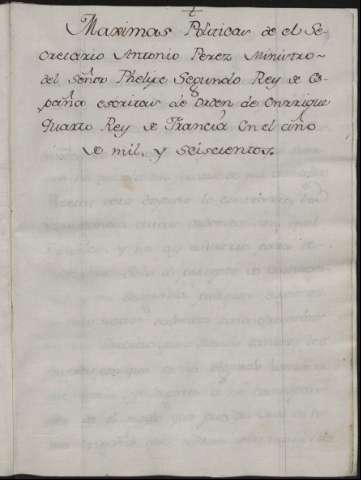 †
Maximas Politicas de el Se-
cretario Antonio Perez Ministro
del Señor Phelipe Segundo Rey de Es-
paña escritas de Orden de Enrrique
Quarto Rey de Francia En el año
de mil, y Seiscientos.